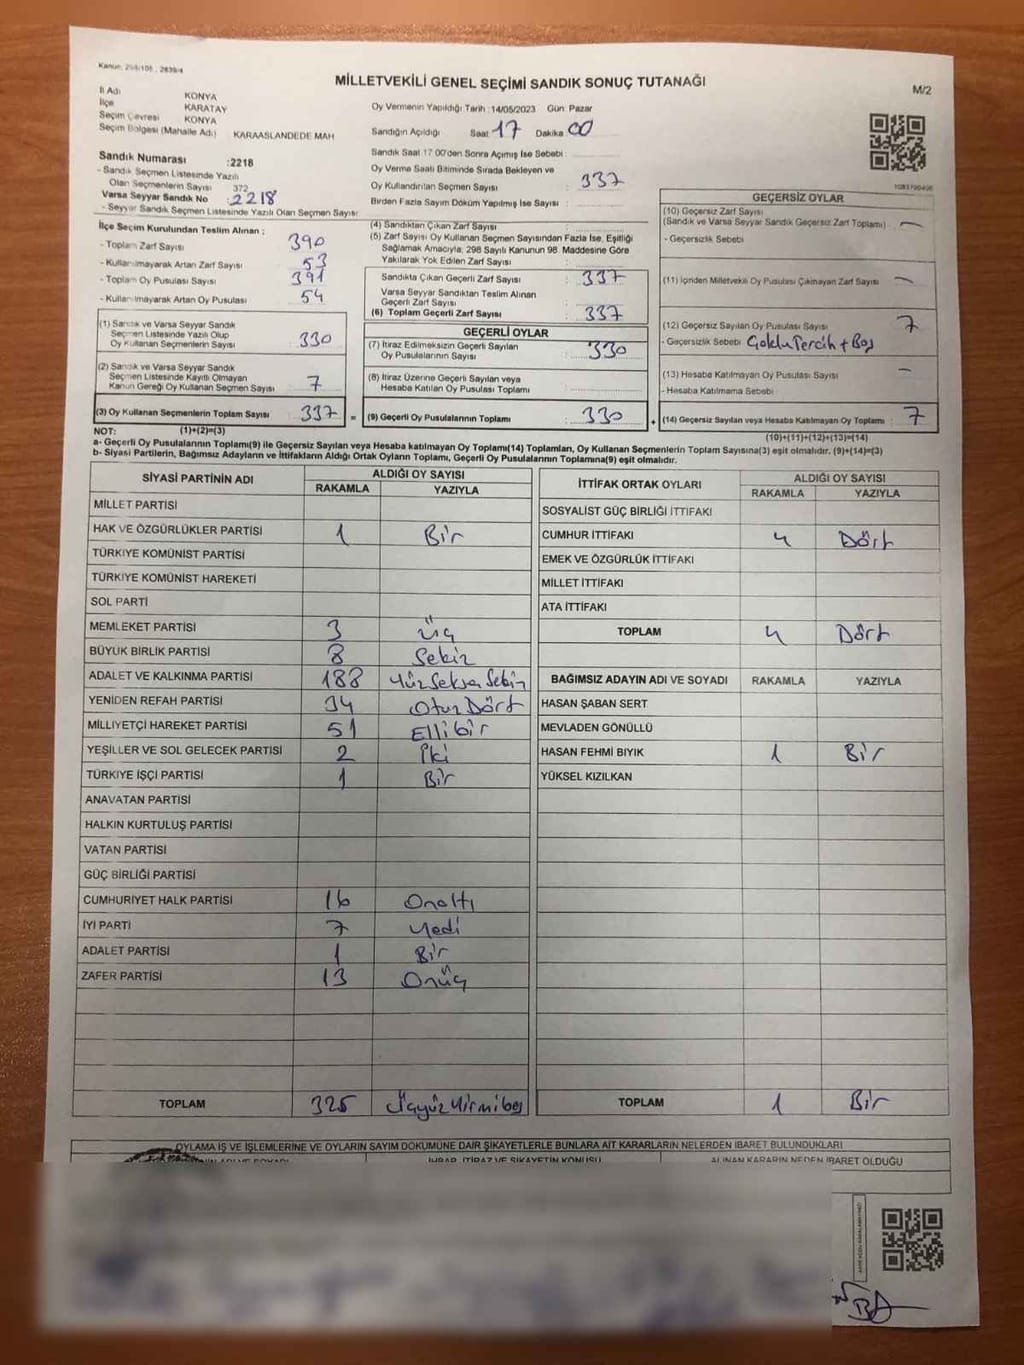 Kanun, 298/105 , 2839/4
MİLLETVEKİLİ GENEL SEÇİMİ SANDIK SONUÇ TUTANAĞI
M/2
İl Adı KONYA
İlçe KARATAY
Seçim Çevresi KONYA
Seçim Bölgesi (Mahalle Adı) KARAASLANDEDE MAH
Oy Vermenin Yapıldığı Tarih :14/05/2023 Gün: Pazar
Sandığın Açıldığı Saat 17 Dakika 00
Sandık Saat 17:00'den Sonra Açılmış İse Sebebi :
Oy Verme Saati Bitiminde Sırada Bekleyen ve
Oy Kullandırılan Seçmen Sayısı : 337
Birden Fazla Sayım Döküm Yapılmış İse Sayısı :
Sandık Numarası :2218
- Sandık Seçmen Listesinde Yazılı
Olan Seçmenlerin Sayısı 372
Varsa Seyyar Sandık No : 2218
- Seyyar Sandık Seçmen Listesinde Yazılı Olan Seçmen Sayısı:
İlçe Seçim Kurulundan Teslim Alınan ;
- Toplam Zarf Sayısı 390
- Kullanılmayarak Artan Zarf Sayısı 53
- Toplam Oy Pusulası Sayısı 391
- Kullanılmayarak Artan Oy Pusulası 54
(1) Sandık ve Varsa Seyyar Sandık
Seçmen Listesinde Yazılı Olup
Oy Kullanan Seçmenlerin Sayısı : 330
(2) Sandık ve Varsa Seyyar Sandık
Seçmen Listesinde Kayıtlı Olmayan
Kanun Gereği Oy Kullanan Seçmen Sayısı : 7
(3) Oy Kullanan Seçmenlerin Toplam Sayısı : 337 =
(4) Sandıktan Çıkan Zarf Sayısı :
(5) Zarf Sayısı Oy Kullanan Seçmen Sayısından Fazla İse, Eşitliği
Sağlamak Amacıyla, 298 Sayılı Kanunun 98. Maddesine Göre
Yakılarak Yok Edilen Zarf Sayısı :
Sandıkta Çıkan Geçerli Zarf Sayısı : 337
Varsa Seyyar Sandıktan Teslim Alınan
Geçerli Zarf Sayısı :
(6) Toplam Geçerli Zarf Sayısı : 337
GEÇERLİ OYLAR
(7) İtiraz Edilmeksizin Geçerli Sayılan
Oy Pusulalarının Sayısı : 330
(8) İtiraz Üzerine Geçerli Sayılan veya
Hesaba Katılan Oy Pusulası Toplamı :
(9) Geçerli Oy Pusulalarının Toplamı : 330 +
1083790406
GEÇERSİZ OYLAR
(10) Geçersiz Zarf Sayısı
(Sandık ve Varsa Seyyar Sandık Geçersiz Zarf Toplamı) : —
- Geçersizlik Sebebi
(11) İçinden Milletvekili Oy Pusulası Çıkmayan Zarf Sayısı : —
(12) Geçersiz Sayılan Oy Pusulası Sayısı : 7
- Geçersizlik Sebebi Çoklu Tercih + Boş
(13) Hesaba Katılmayan Oy Pusulası Sayısı : —
- Hesaba Katılmama Sebebi
(14) Geçersiz Sayılan veya Hesaba Katılmayan Oy Toplamı : 7
NOT: (1)+(2)=(3) (10)+(11)+(12)+(13)=(14)
a- Geçerli Oy Pusulalarının Toplamı(9) ile Geçersiz Sayılan veya Hesaba katılmayan Oy Toplamı(14) Toplamları, Oy Kullanan Seçmenlerin Toplam Sayısına(3) eşit olmalıdır. (9)+(14)=(3)
b- Siyasi Partilerin, Bağımsız Adayların ve İttifakların Aldığı Ortak Oyların Toplamı, Geçerli Oy Pusulalarının Toplamına(9) eşit olmalıdır.
SİYASİ PARTİNİN ADI ALDIĞI OY SAYISI
RAKAMLA YAZIYLA
MİLLET PARTİSİ
HAK VE ÖZGÜRLÜKLER PARTİSİ 1 Bir
TÜRKİYE KOMÜNİST PARTİSİ
TÜRKİYE KOMÜNİST HAREKETİ
SOL PARTİ
MEMLEKET PARTİSİ 3 Üç
BÜYÜK BİRLİK PARTİSİ 8 Sekiz
ADALET VE KALKINMA PARTİSİ 188 YüzSeksenSekiz
YENİDEN REFAH PARTİSİ 34 OtuzDört
MİLLİYETÇİ HAREKET PARTİSİ 51 Ellibir
YEŞİLLER VE SOL GELECEK PARTİSİ 2 İki
TÜRKİYE İŞÇİ PARTİSİ 1 Bir
ANAVATAN PARTİSİ
HALKIN KURTULUŞ PARTİSİ
VATAN PARTİSİ
GÜÇ BİRLİĞİ PARTİSİ
CUMHURİYET HALK PARTİSİ 16 Onaltı
İYİ PARTİ 7 Yedi
ADALET PARTİSİ 1 Bir
ZAFER PARTİSİ 13 Onüç
TOPLAM 325 ÜçyüzYirmibeş
İTTİFAK ORTAK OYLARI ALDIĞI OY SAYISI
RAKAMLA YAZIYLA
SOSYALİST GÜÇ BİRLİĞİ İTTİFAKI
CUMHUR İTTİFAKI 4 Dört
EMEK VE ÖZGÜRLÜK İTTİFAKI
MİLLET İTTİFAKI
ATA İTTİFAKI
TOPLAM 4 Dört
BAĞIMSIZ ADAYIN ADI VE SOYADI RAKAMLA YAZIYLA
HASAN ŞABAN SERT
MEVLADEN GÖNÜLLÜ
HASAN FEHMİ BIYIK 1 Bir
YÜKSEL KIZILKAN
TOPLAM 1 Bir
OYLAMA İŞ VE İŞLEMLERİNE VE OYLARIN SAYIM DÖKÜMÜNE DAİR ŞİKAYETLERLE BUNLARA AİT KARARLARIN NELERDEN İBARET BULUNDUKLARI
İHBAR, İTİRAZ VE ŞİKAYETİN KONUSU ALINAN KARARIN NEDEN İBARET OLDUĞU